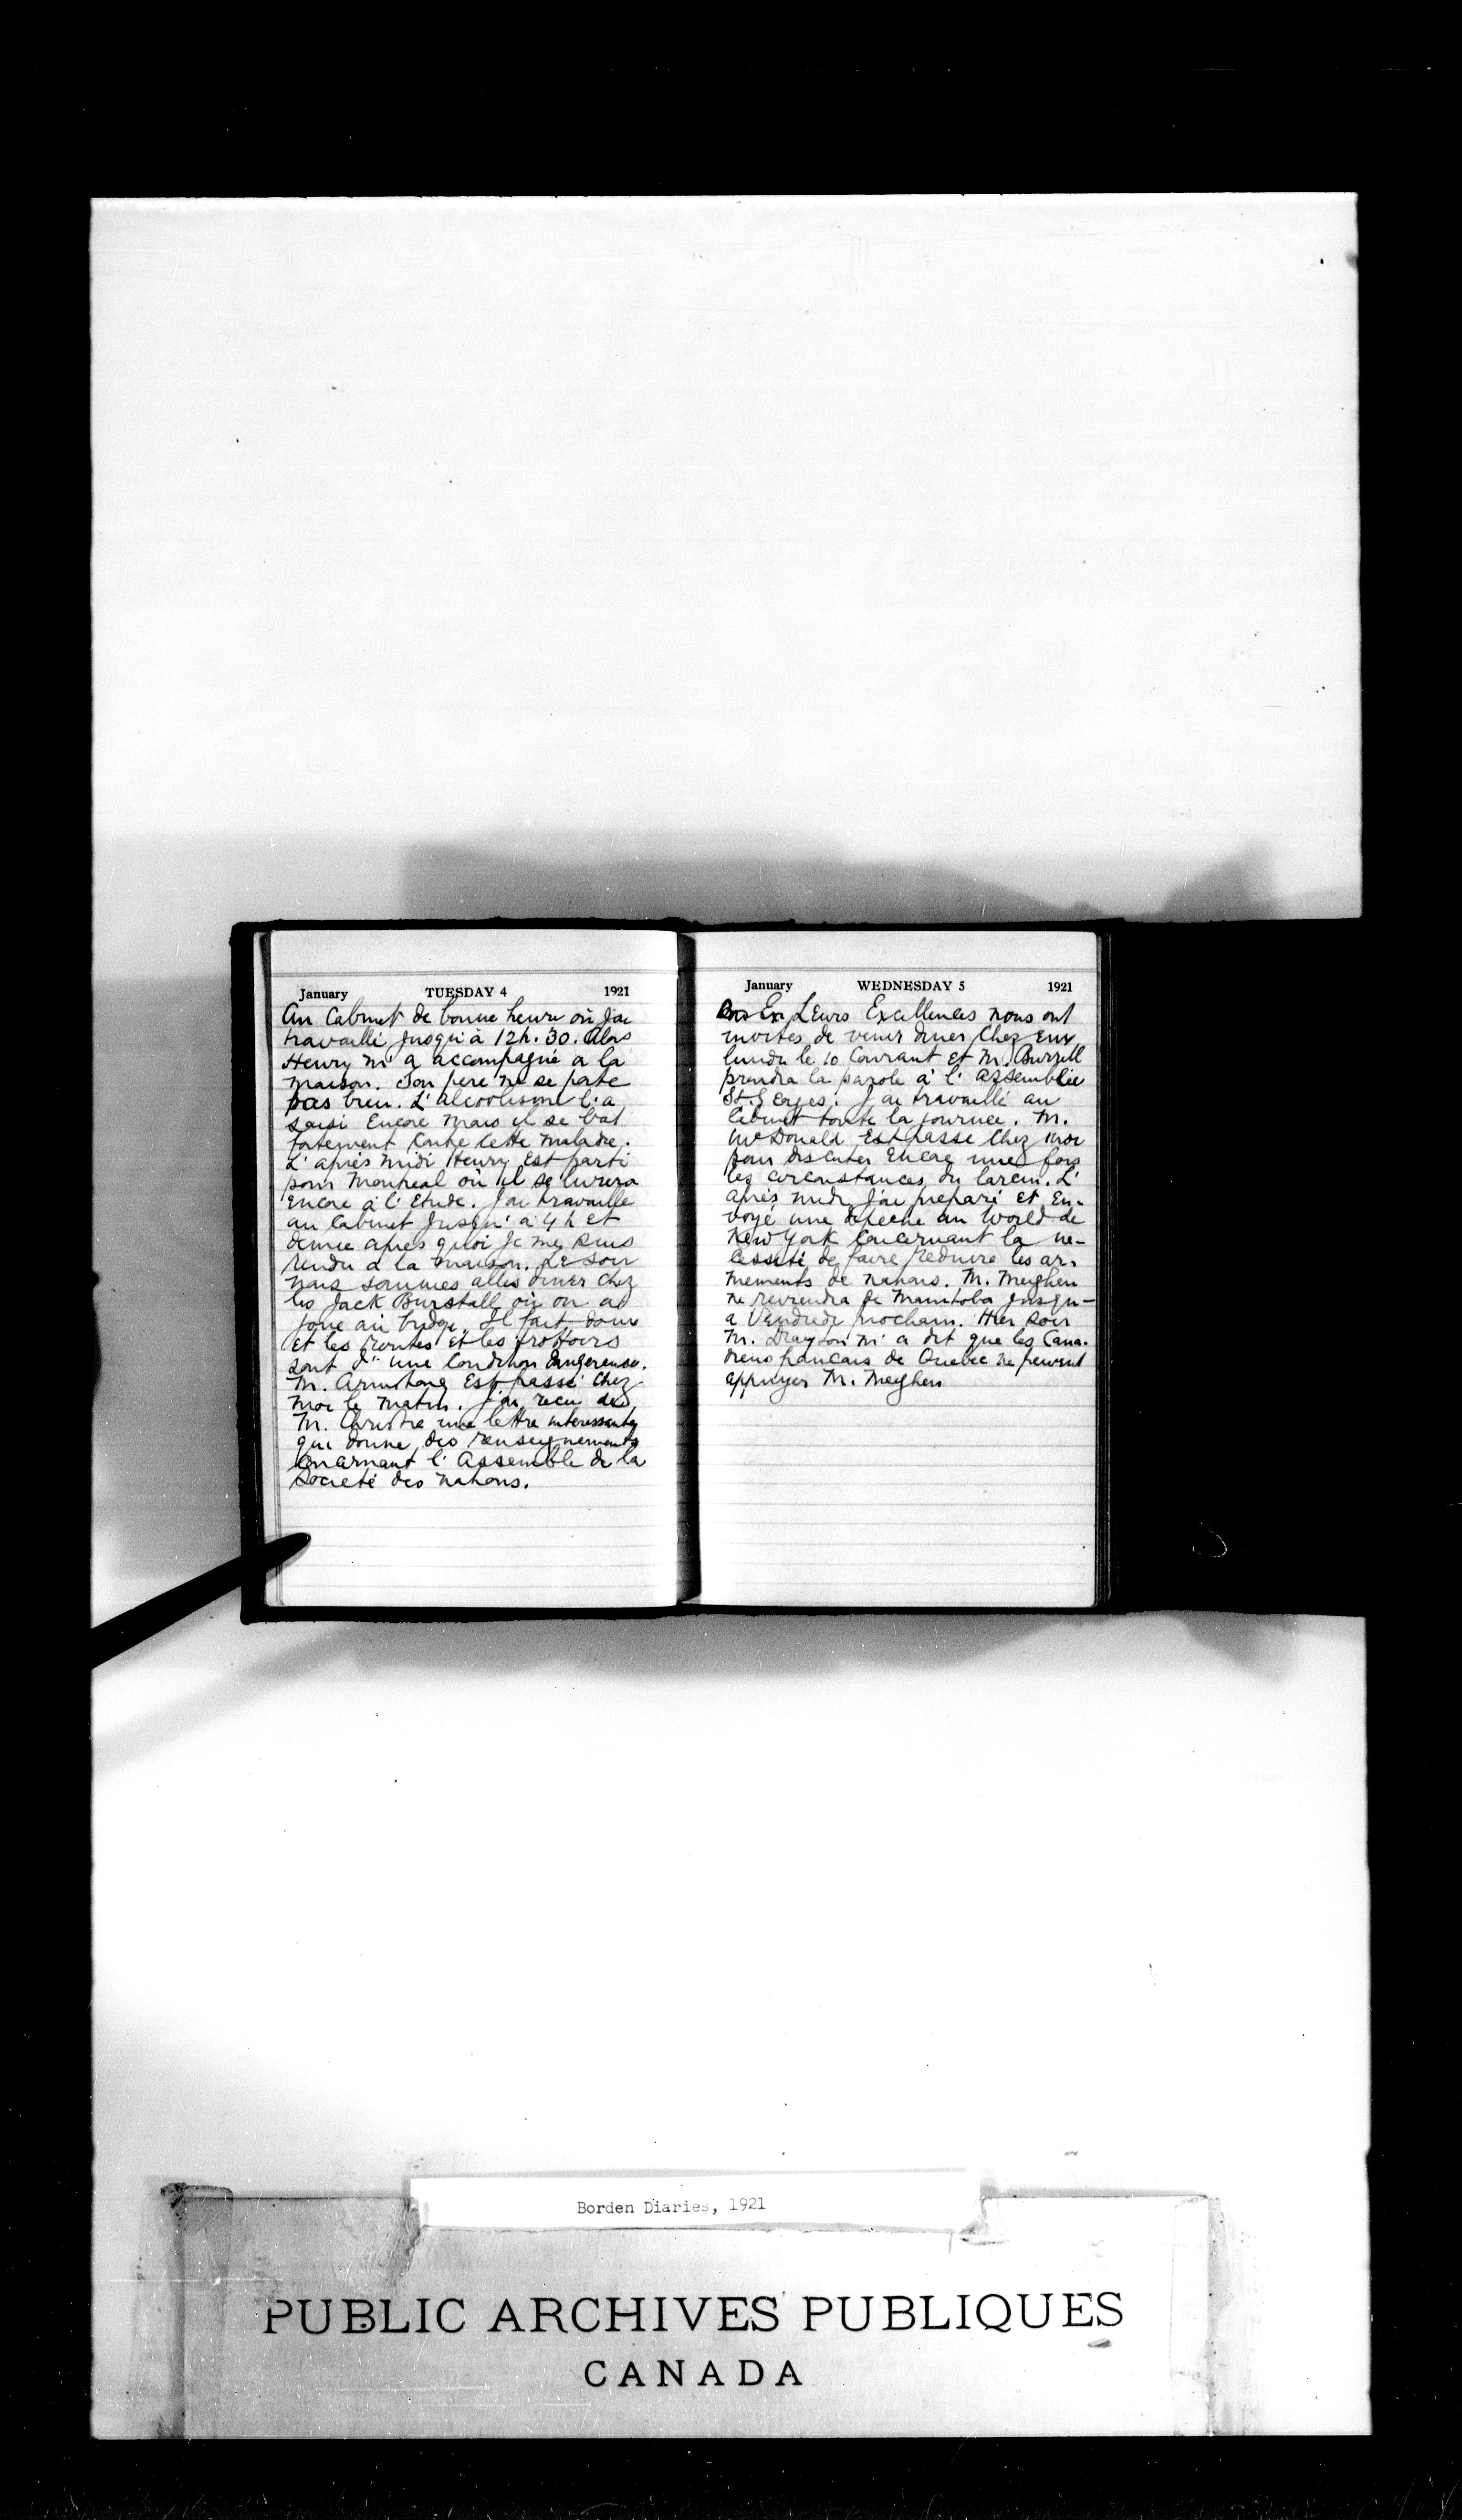 January TUESDAY 4 1921
Au Cabinet de bonne heure où j'ai
travaillé jusqu'à 12h.30. Alors
Henry m'a accompagné a la
maison. Son pere ne se porte
pas bien. L'alcoolisme l'a
saisi encore mais il se bat
fortement contre cette maladie.
L'après midi Henry est parti
pour Montreal où il se livrera
encore à l'etude. J'ai travaillé
au Cabinet jusqu'a 4 h et
demie apres quoi je me suis
rendu a la maison. Le soir
nous sommes allés diner chez
les Jack Burstall où on a
joué au bridge. Il fait doux
et les routes et les trottoirs
sont d'une condition dangereuse.
M. Armstrong est passé chez
moi le matin. J'ai recu de
M. Christie une lettre interessante
qui donne des renseignements
concernant l'Assemblé de la
Societé des Nations.
January WEDNESDAY 5 1921
Leurs Excellences nous ont
invités de venir diner chez eux
lundi le 10 Courant et M. Burrell
prendra la parole à l'assemblée
St. Georges. J'ai travaillé au
Cabinet toute la journée. M.
McDonald est passé chez moi
pour discuter encore une fois
les circonstances du larcin. L'
après midi j'ai preparé et en-
voyé une depeche au World de
New York concernant la ne-
cessité de faire reduire les ar-
mements de nations. M. Meighen
ne reviendra de Manitoba jusqu-
a Vendredi prochain. Hier soir
M. Drayton m'a dit que les Cana-
diens francais de Quebec ne peuvent
appuyer M. Meighen
Borden Diaries, 1921
PUBLIC ARCHIVES PUBLIQUES
CANADA